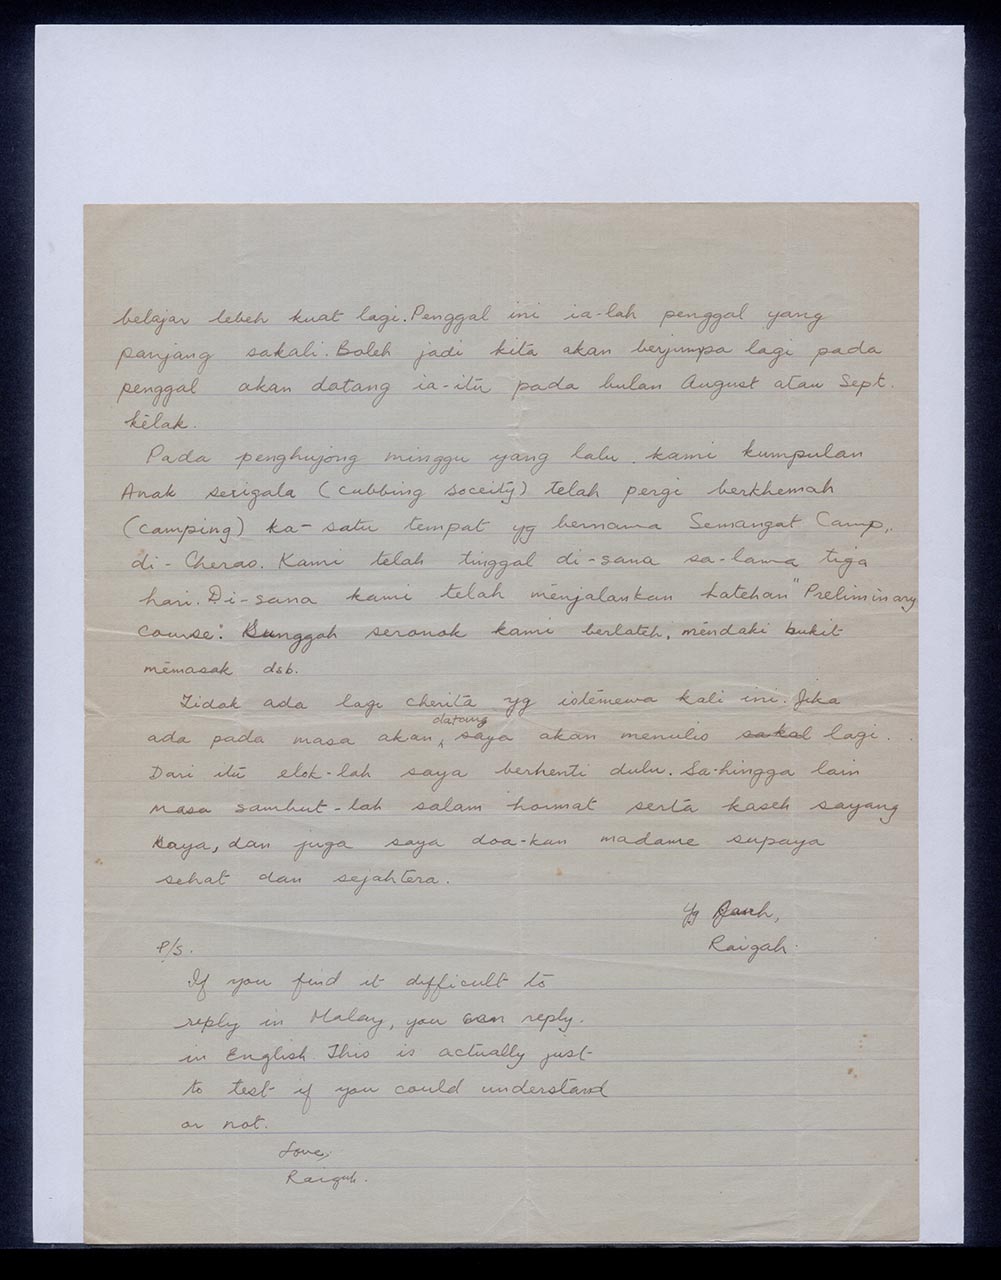 belajar lebeh kuat lagi. Penggal ini ia-lah penggal yang
panjang sakali. Boleh jadi kita akan berjumpa lagi pada
penggal akan datang ia-itu pada bulan August atau Sept.
kelak.
Pada penghujong minggu yang lalu. kami kumpulan
Anak serigala (cubbing soceity) telah pergi berkhemah
(camping) ka-satu tempat yg bernama Semangat Camp,
di-Cheras. Kami telah tinggal di-sana sa-lama tiga
hari. Di-sana kami telah menjalankan Latehan "Preliminary
course". Sunggoh seronok kami berlateh, mendaki bukit
memasak dsb.
Tidak ada lagi cherita yg istemewa kali ini. Jika
ada pada masa akan datang saya akan menulis sakal lagi.
Dari itu elok-lah saya berhenti dulu. Sa-hingga lain
masa sambut-lah salam hormat serta kaseh sayang
saya, dan juga saya doa-kan madame supaya
sehat dan sejahtera.
Yg Jauh,
Raigah.
P/S.
If you find it difficult to
reply in Malay, you can reply.
in English. This is actually just
to test if you could understand
or not.
Love,
Raigah.